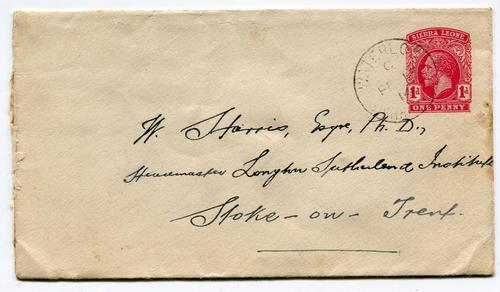 SIERRA LEONE
WATERLOO
1d 1d
ONE PENNY
W. Harris, Esqre, Ph. D.,
Headmaster Longton Sutherland Institute
Stoke-on-Trent.